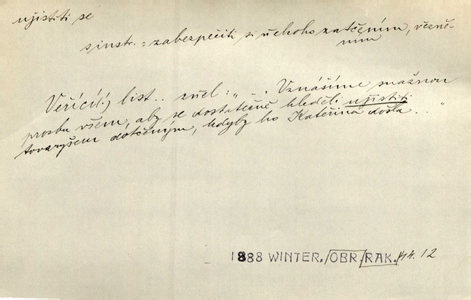 ujistiti se
s instr.: zabezpečiti si někoho zatčením, vězně-
ním
Věřící list.. zněl: „.. Vznášíme snažnou
prosbu všem, aby se dostatečně hleděli ujistiti
tovaryšem dotčeným, kdyby ho Kateřina došla..."
1888 WINTER./OBR./RAK. 14. 12